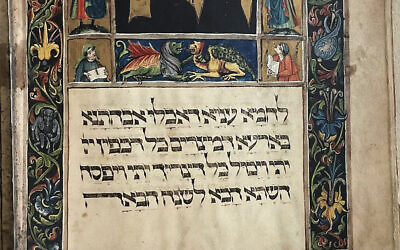 לחמא עניא דאכלו אבהתנא
בארעא דמצרים כל דכפין יי
יתי וייכול כל דצריך ייתי ויפסח
השתא הכא לשנה הבאה